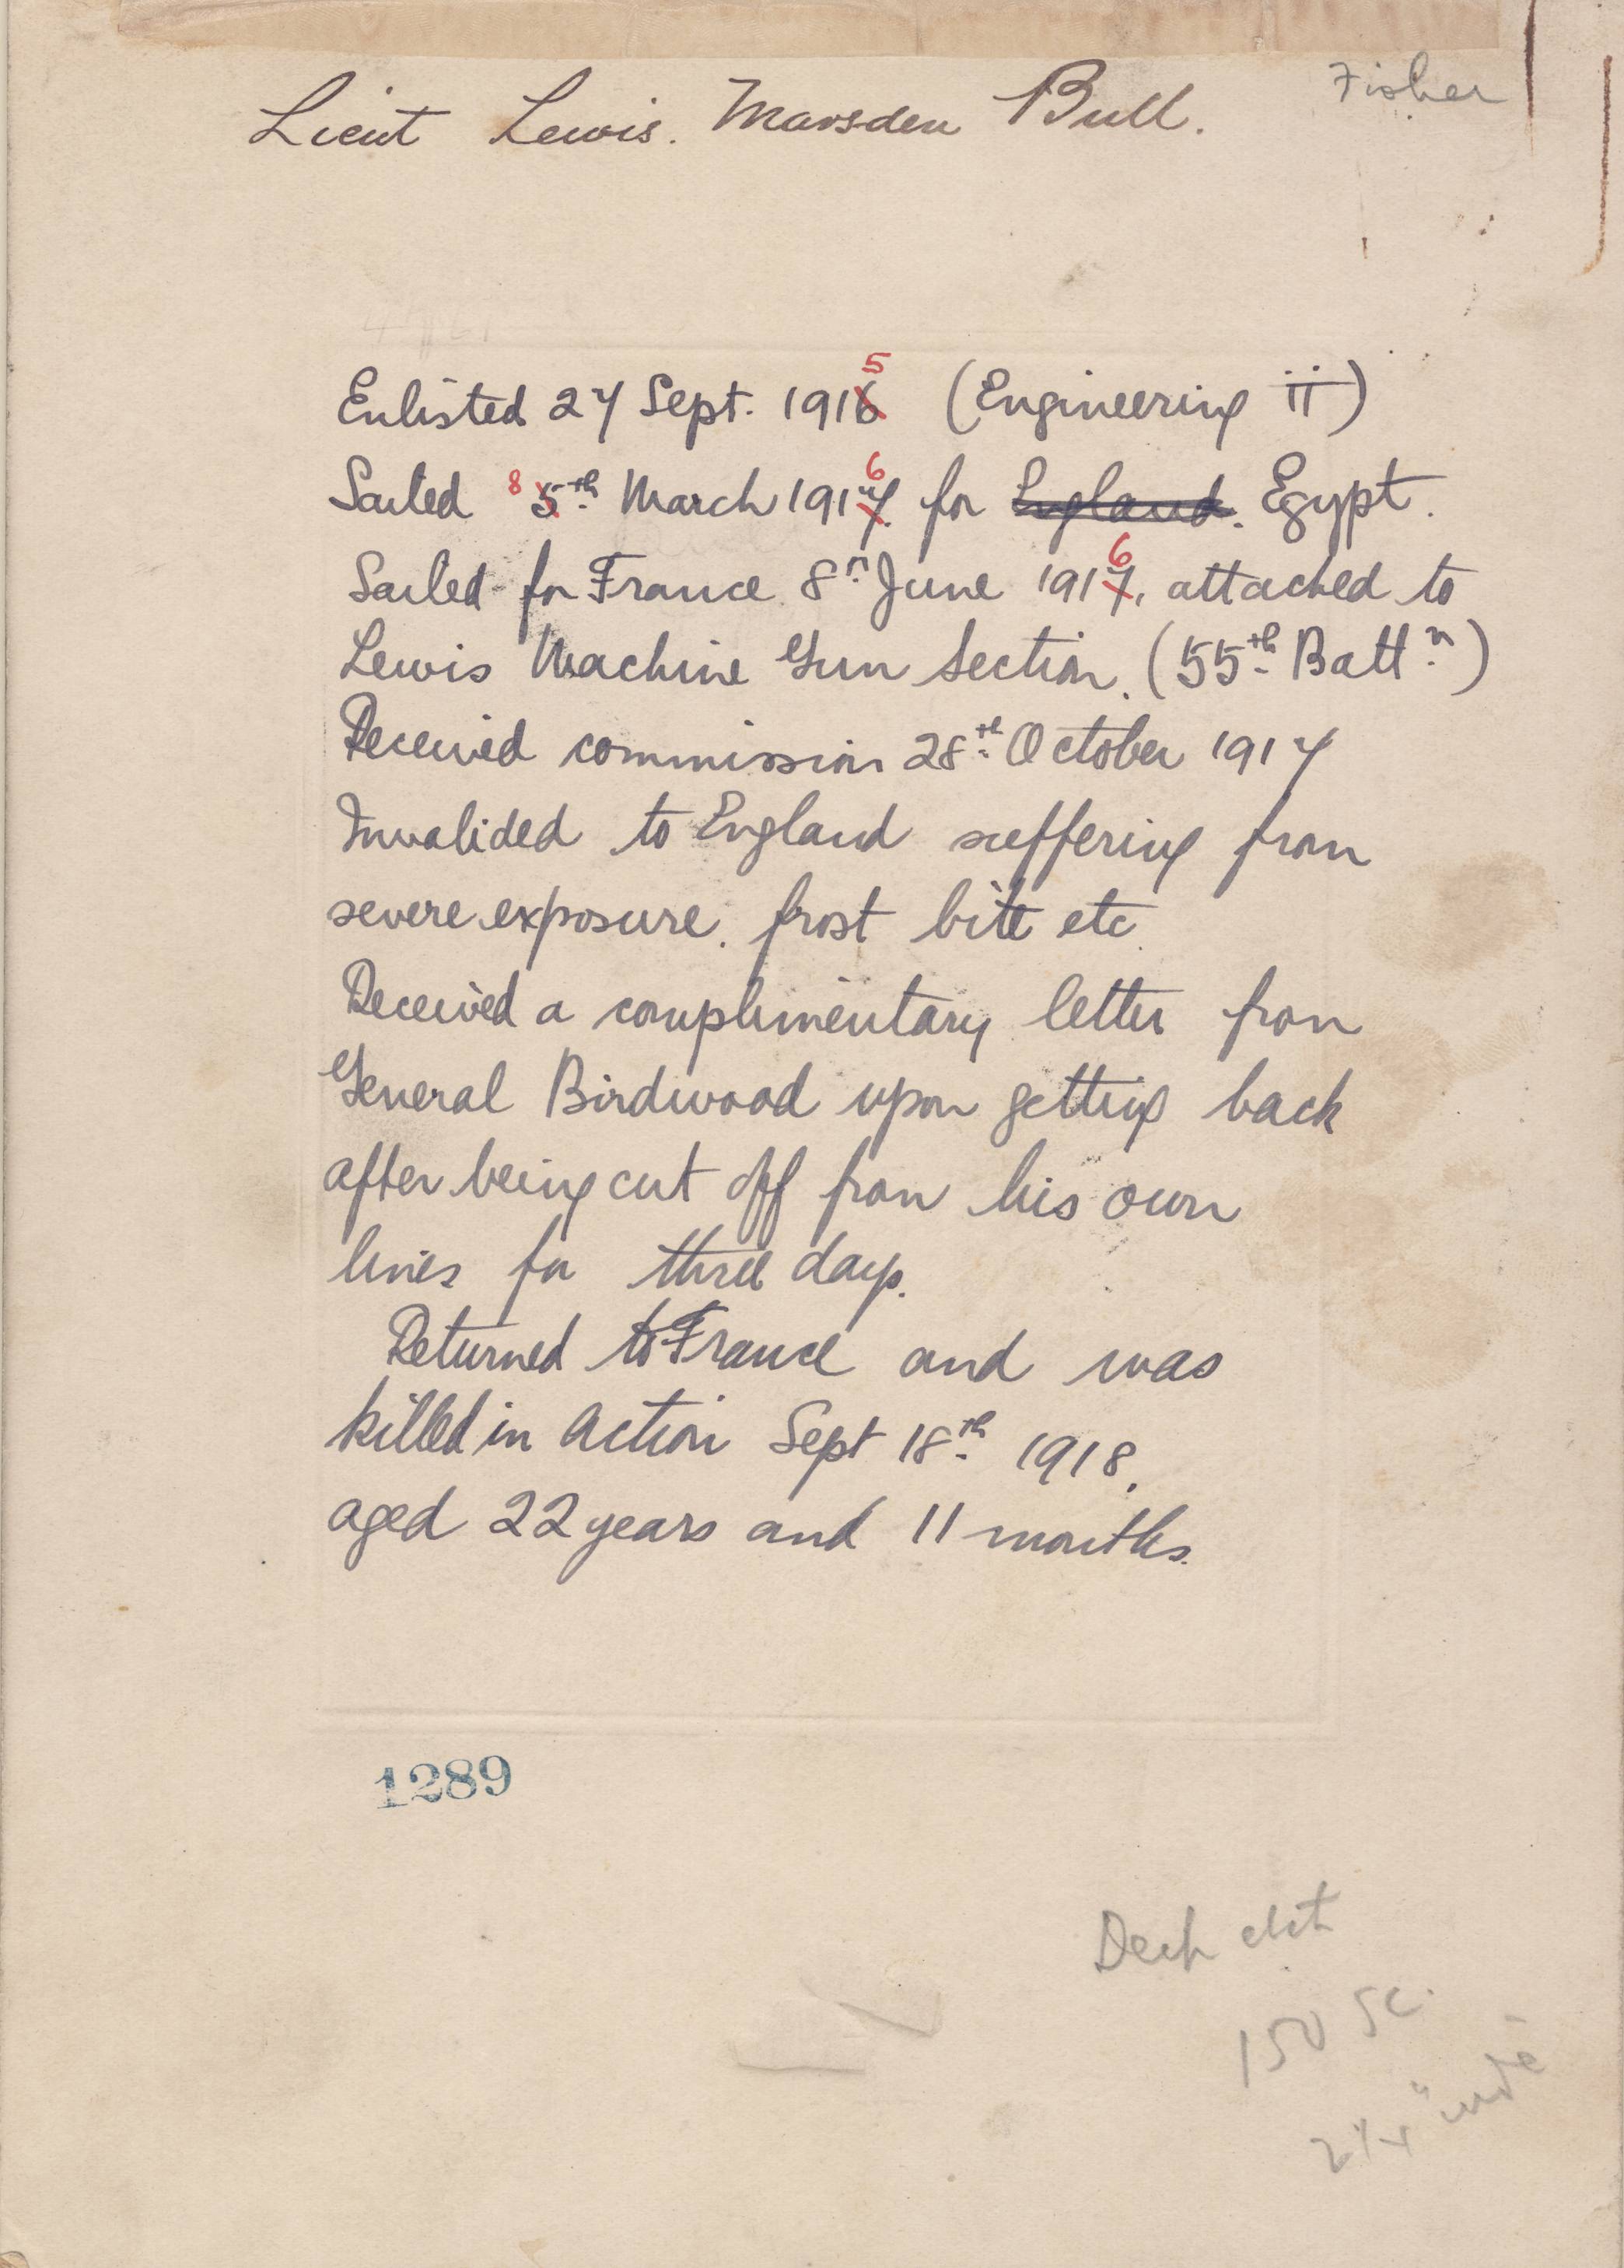 Lieut Lewis. Marsden Bull.
Fisher
Enlisted 27 Sept. 1916 5 (Engineering ii)
Sailed 8 5th March 1917 6 for England. Egypt.
Sailed for France 8th June 1917 6, attached to
Lewis Machine Gun Section. (55th Battn)
Received commission 28th October 1917
Invalided to England suffering from
severe exposure. frost bite etc.
Received a complimentary letter from
General Birdwood upon getting back
after being cut off from his own
lines for three days.
Returned to France and was
killed in action Sept 18th 1918,
aged 22 years and 11 months.
1289
150 Sc.
2 1/4"